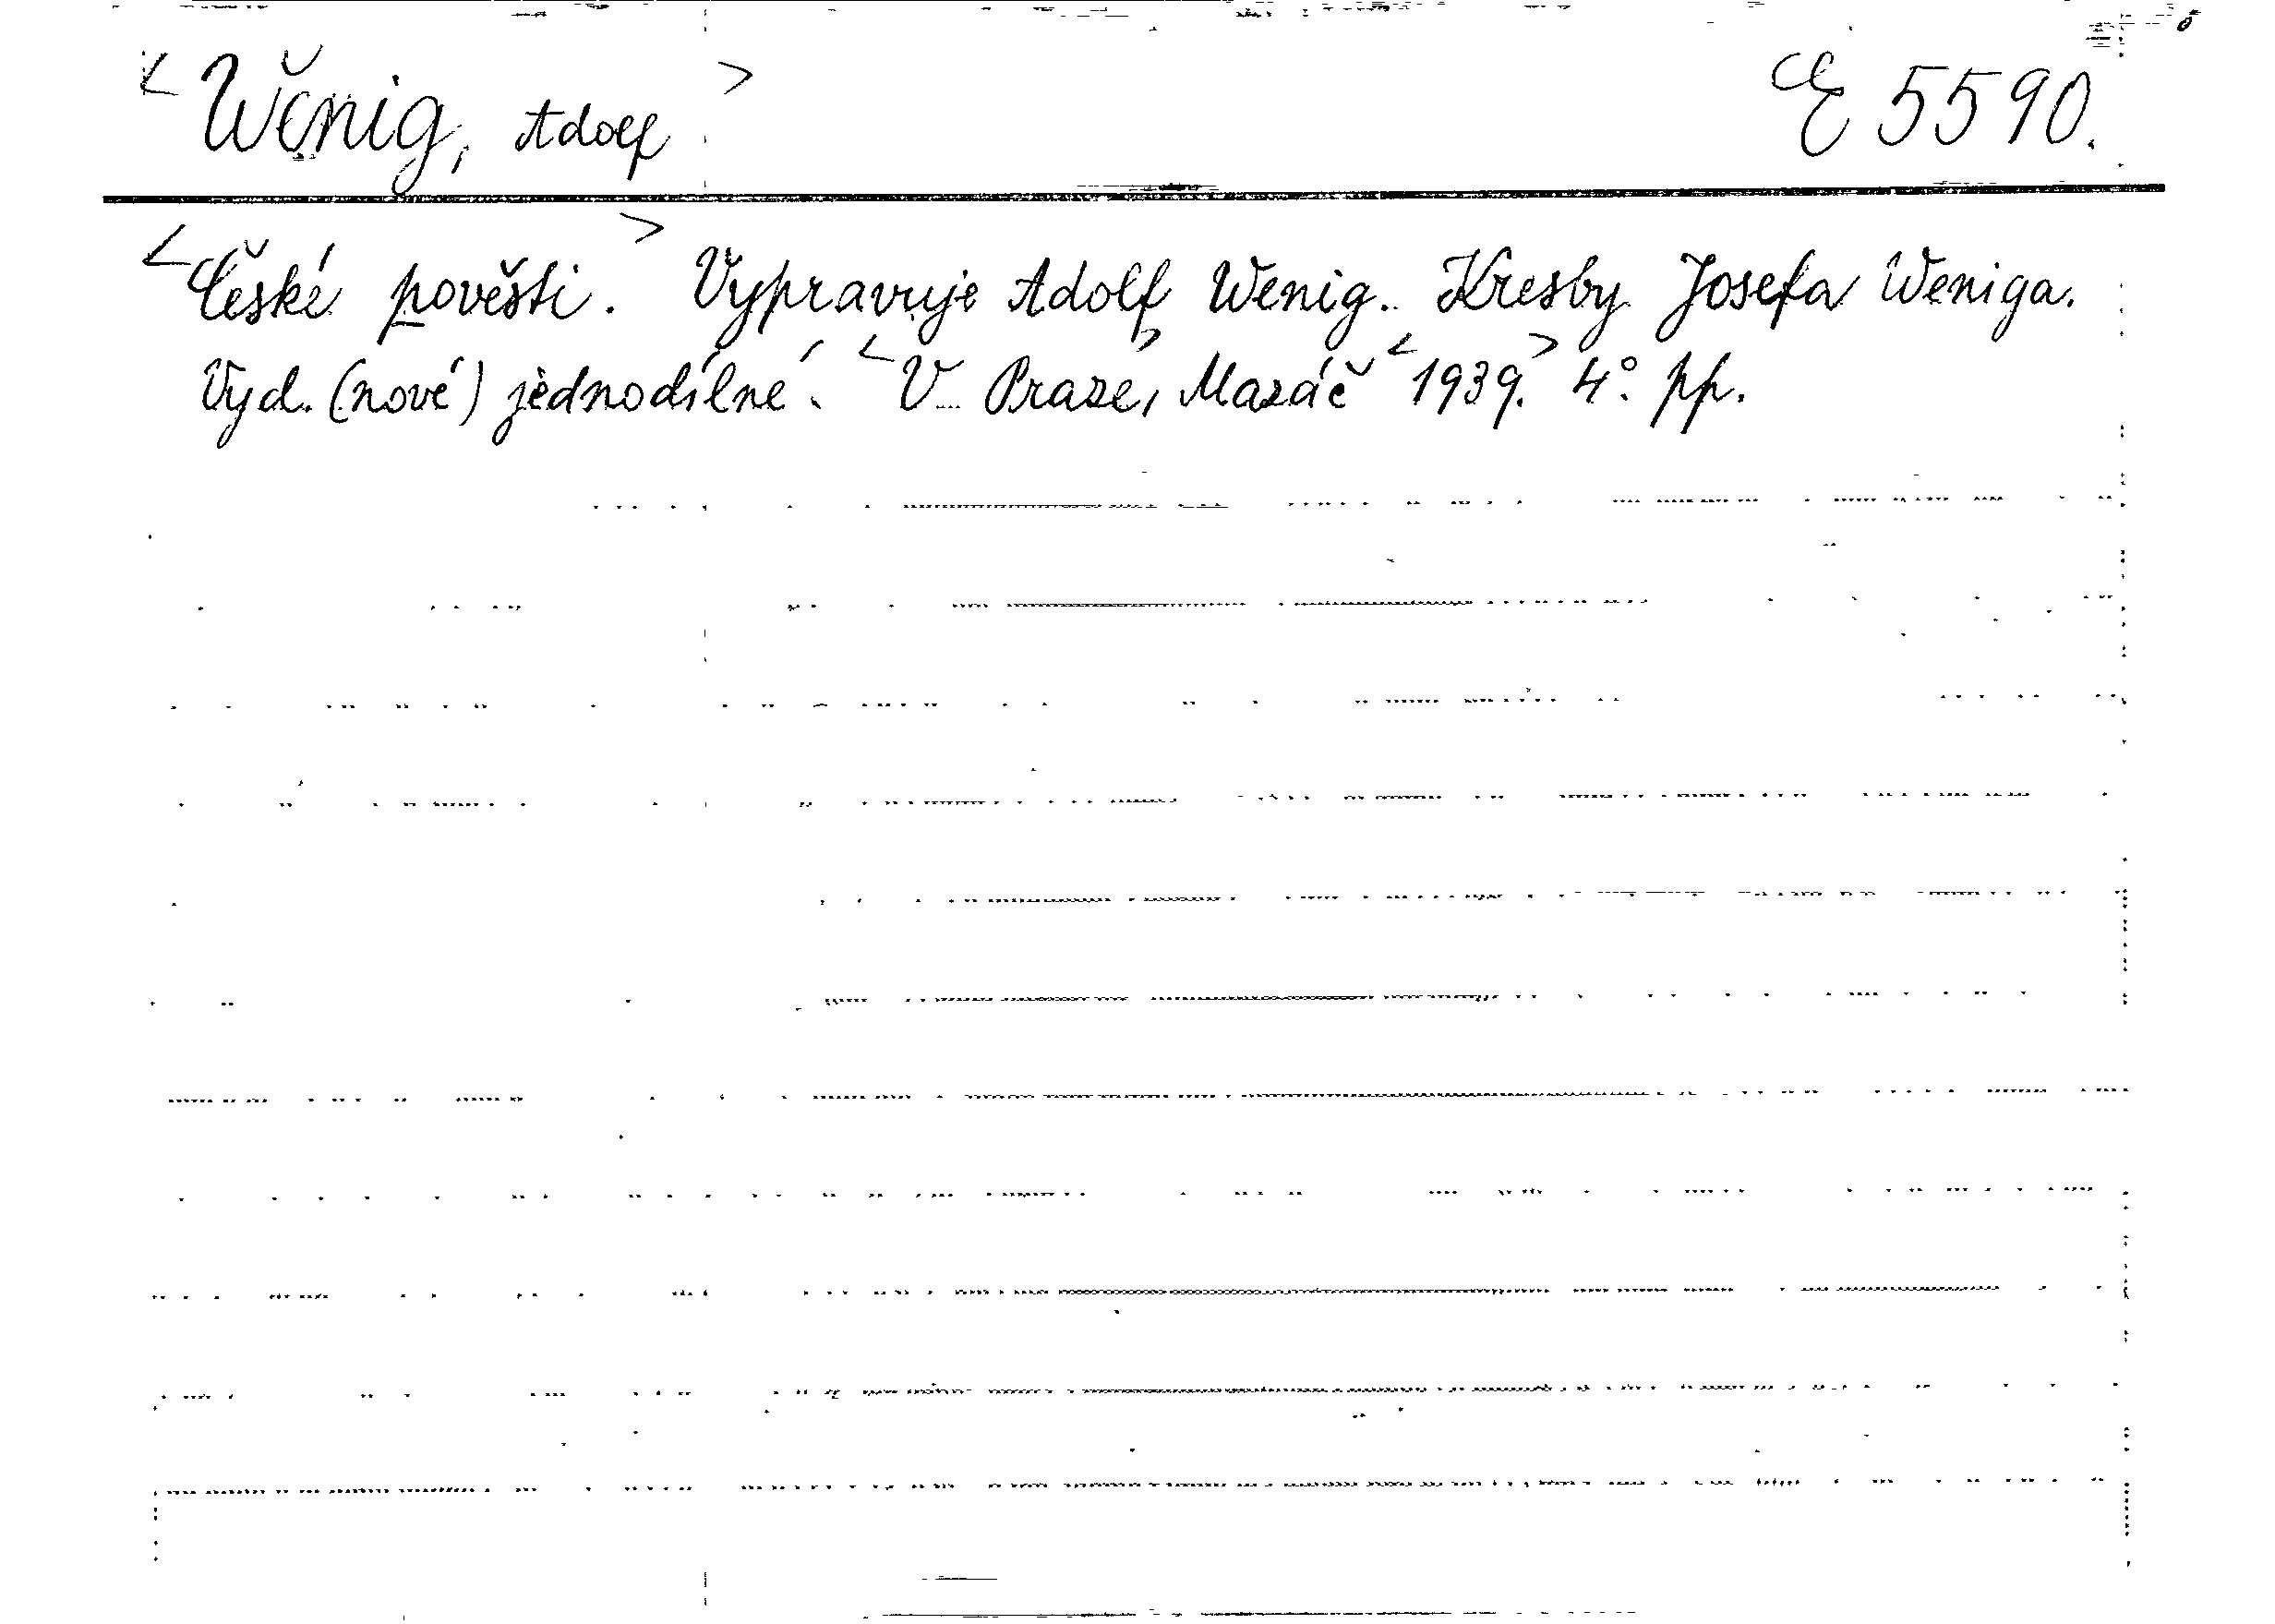 <Wenig, Adolf> E 5590.
<České pověsti.> Vypravuje Adolf Wenig. Kresby Josefa Weniga.
Vyd. (nové) jednodílné. <V Praze, Mazáč <1939.> 4°. pp.